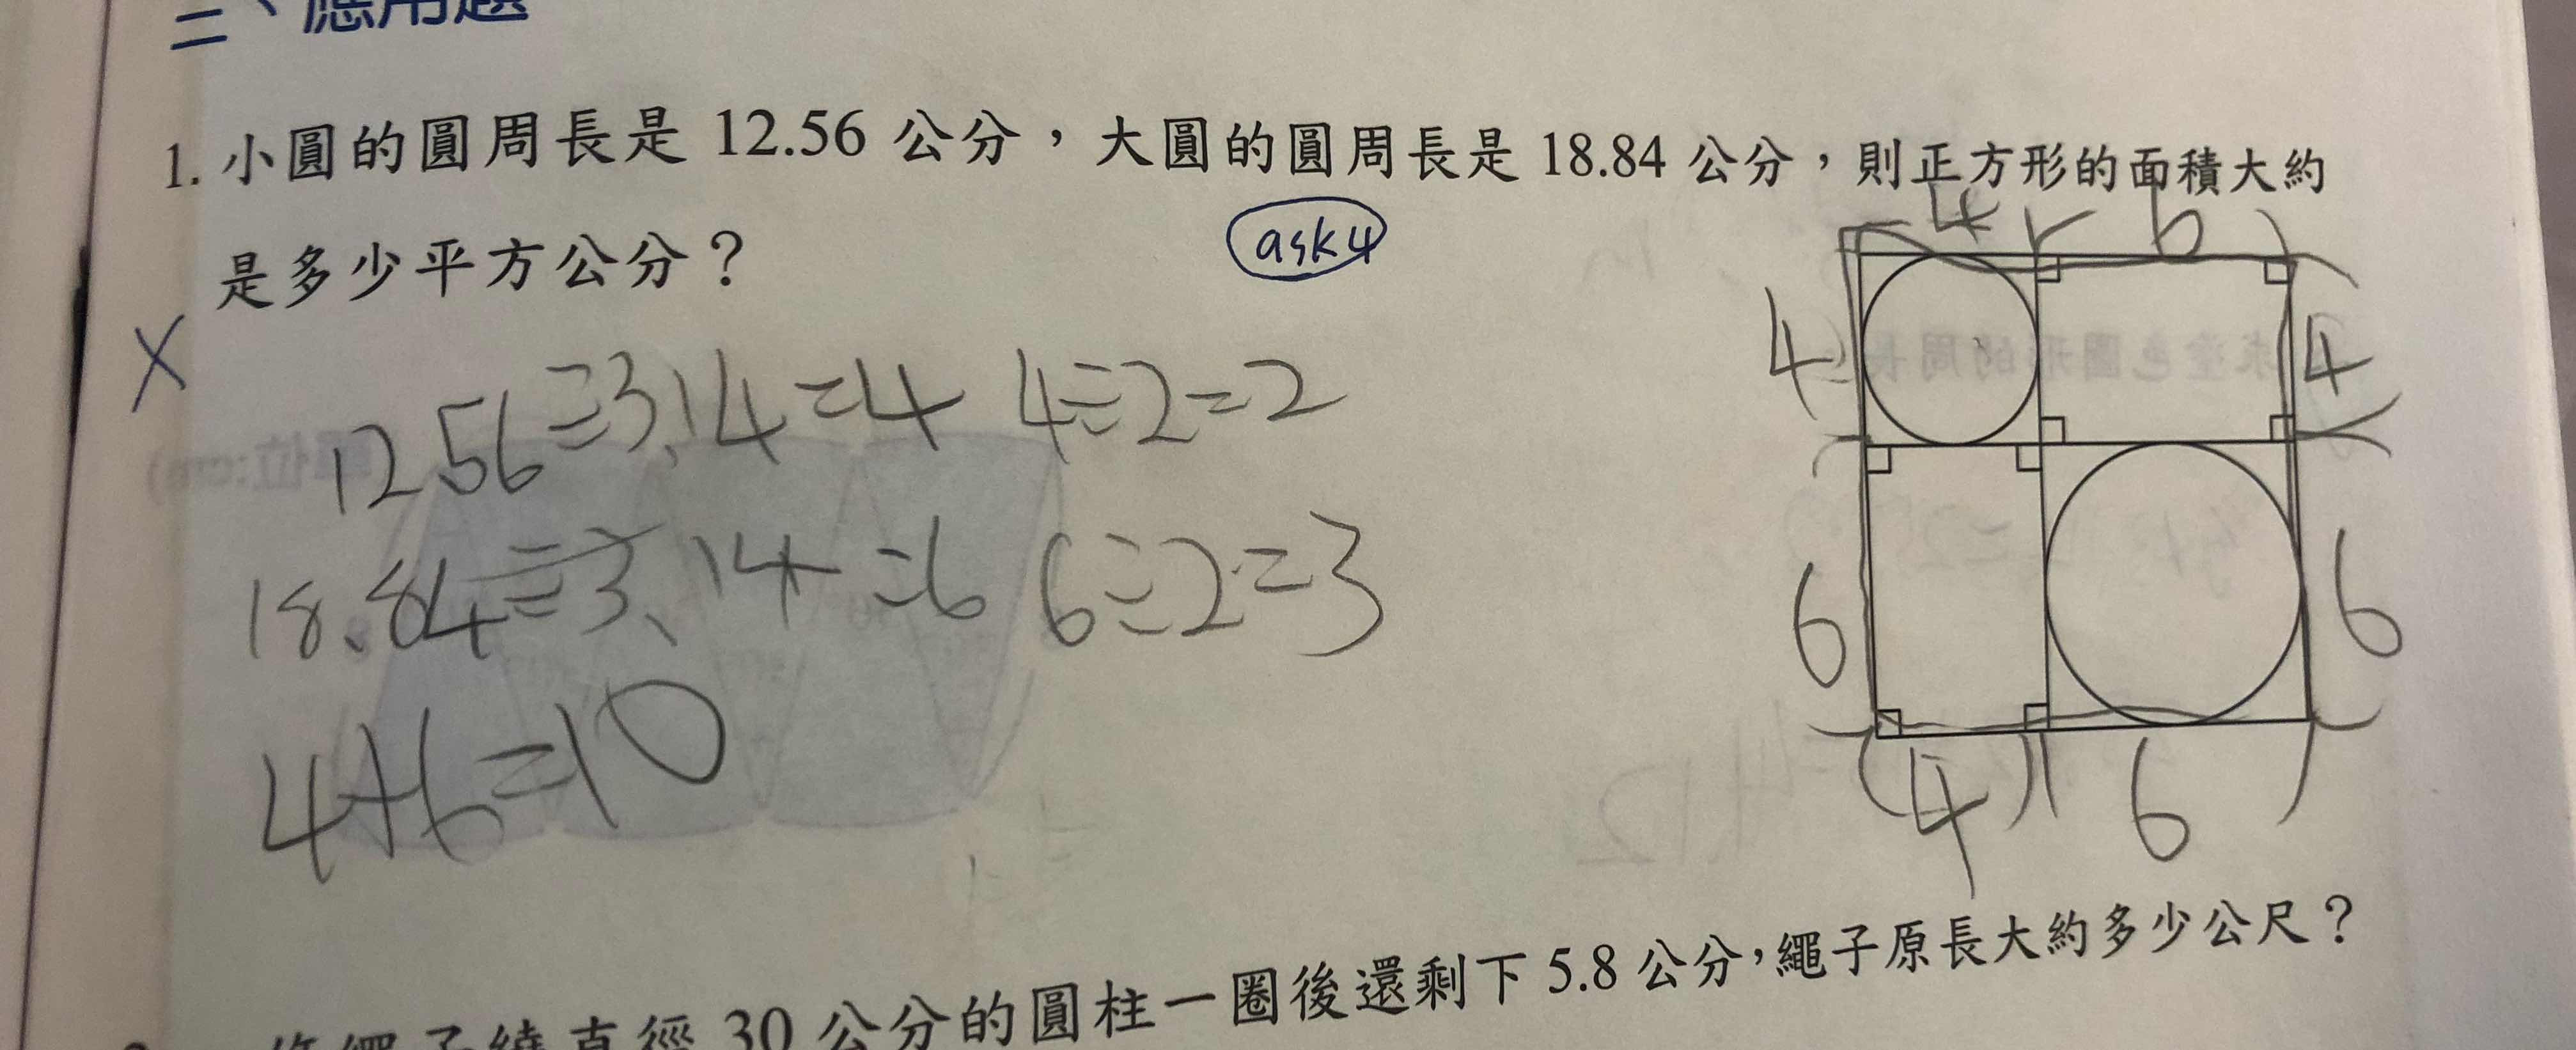 二、應用題
1. 小圓的圓周長是 12.56 公分，大圓的圓周長是 18.84 公分，則正方形的面積大約
是多少平方公分？
ask4
X
4 6
4 4
6 6
4 6
12.56÷3.14=4 4÷2=2
18.84÷3.14=6 6÷2=3
4+6=10
繩子繞直徑 30 公分的圓柱一圈後還剩下 5.8 公分，繩子原長大約多少公尺？